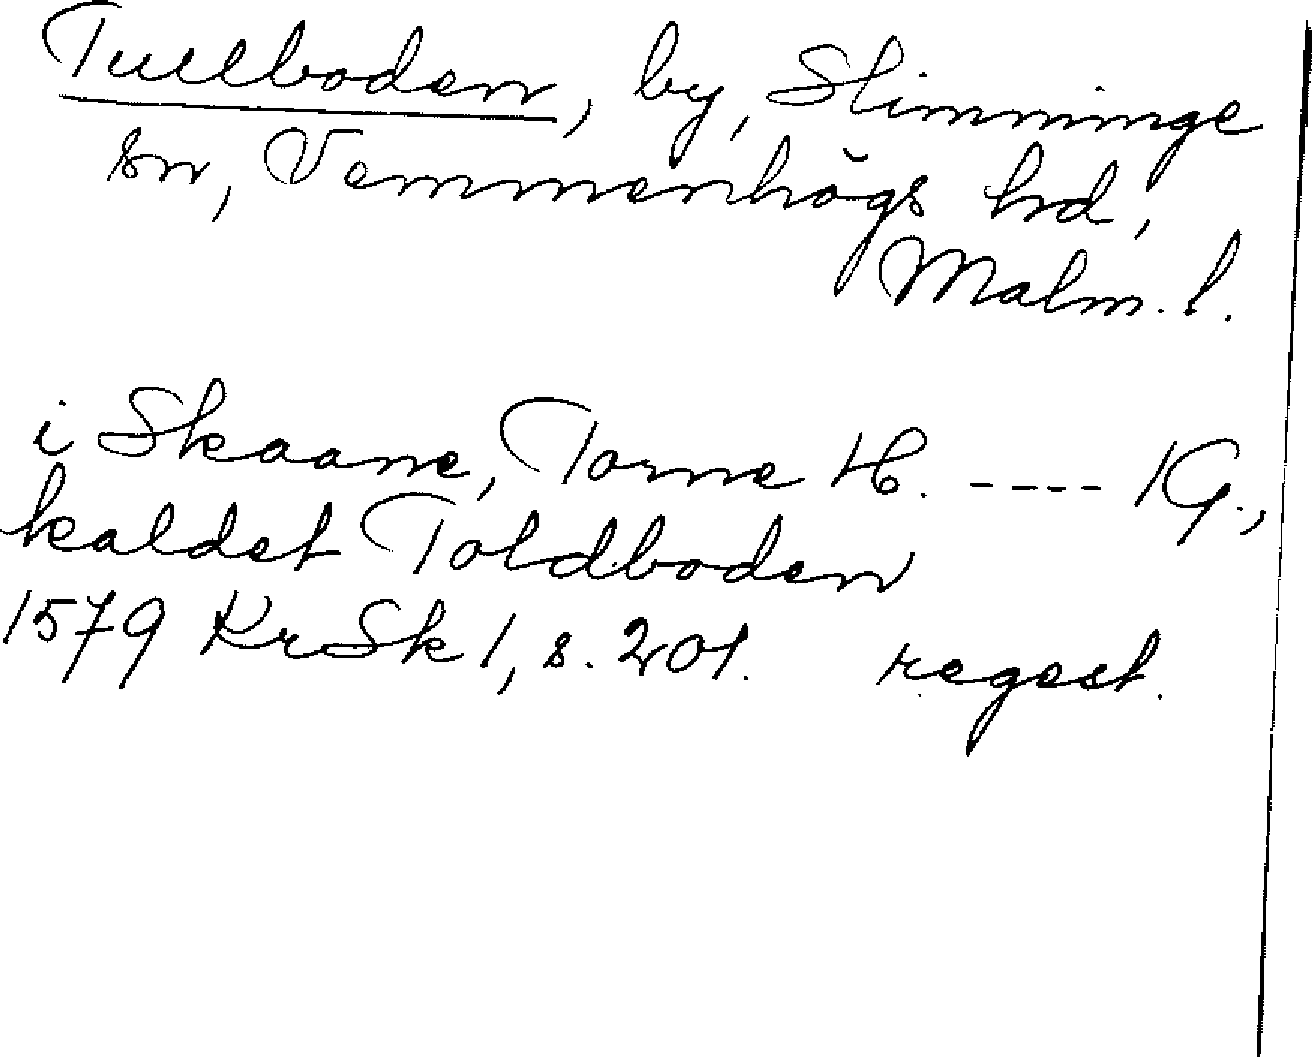 Tullboden, by, Slimminge
sn, Vemmenhögs hd,
Malm. l.
i Skaane, Torne H. ---- 1 G.,
kaldet Toldboden
1579 KrSk 1, s. 201. regest.